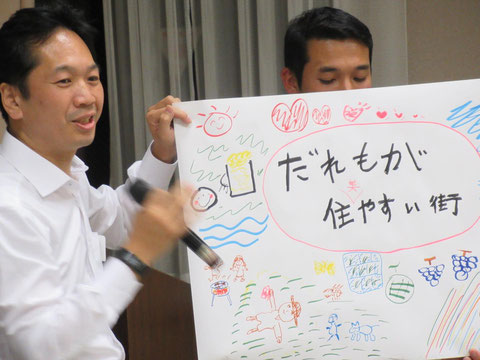 だれもが
住やすい街